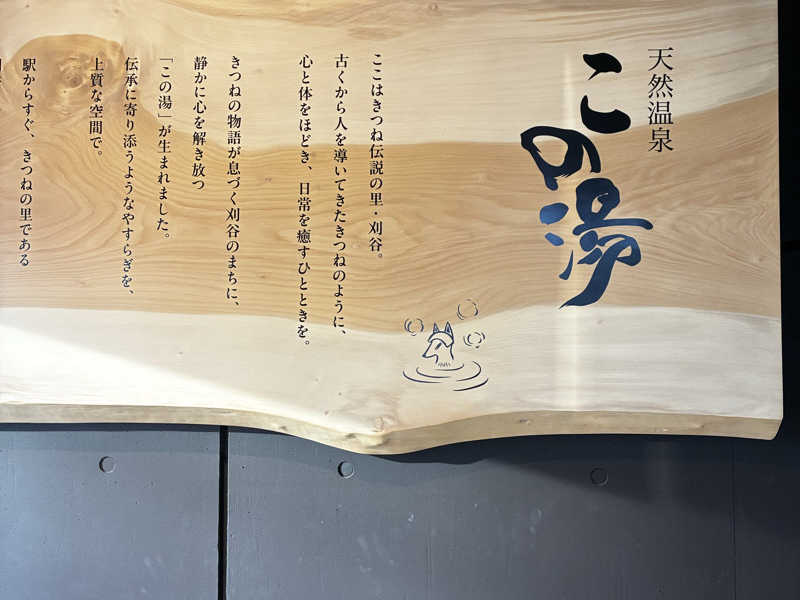 天然温泉
この湯
ここはきつね伝説の里・刈谷。
古くから人を導いてきたきつねのように、
心と体をほどき、日常を癒すひとときを。
きつねの物語が息づく刈谷のまちに、
静かに心を解き放つ
「この湯」が生まれました。
伝承に寄り添うようなやすらぎを、
上質な空間で。
駅からすぐ、きつねの里である